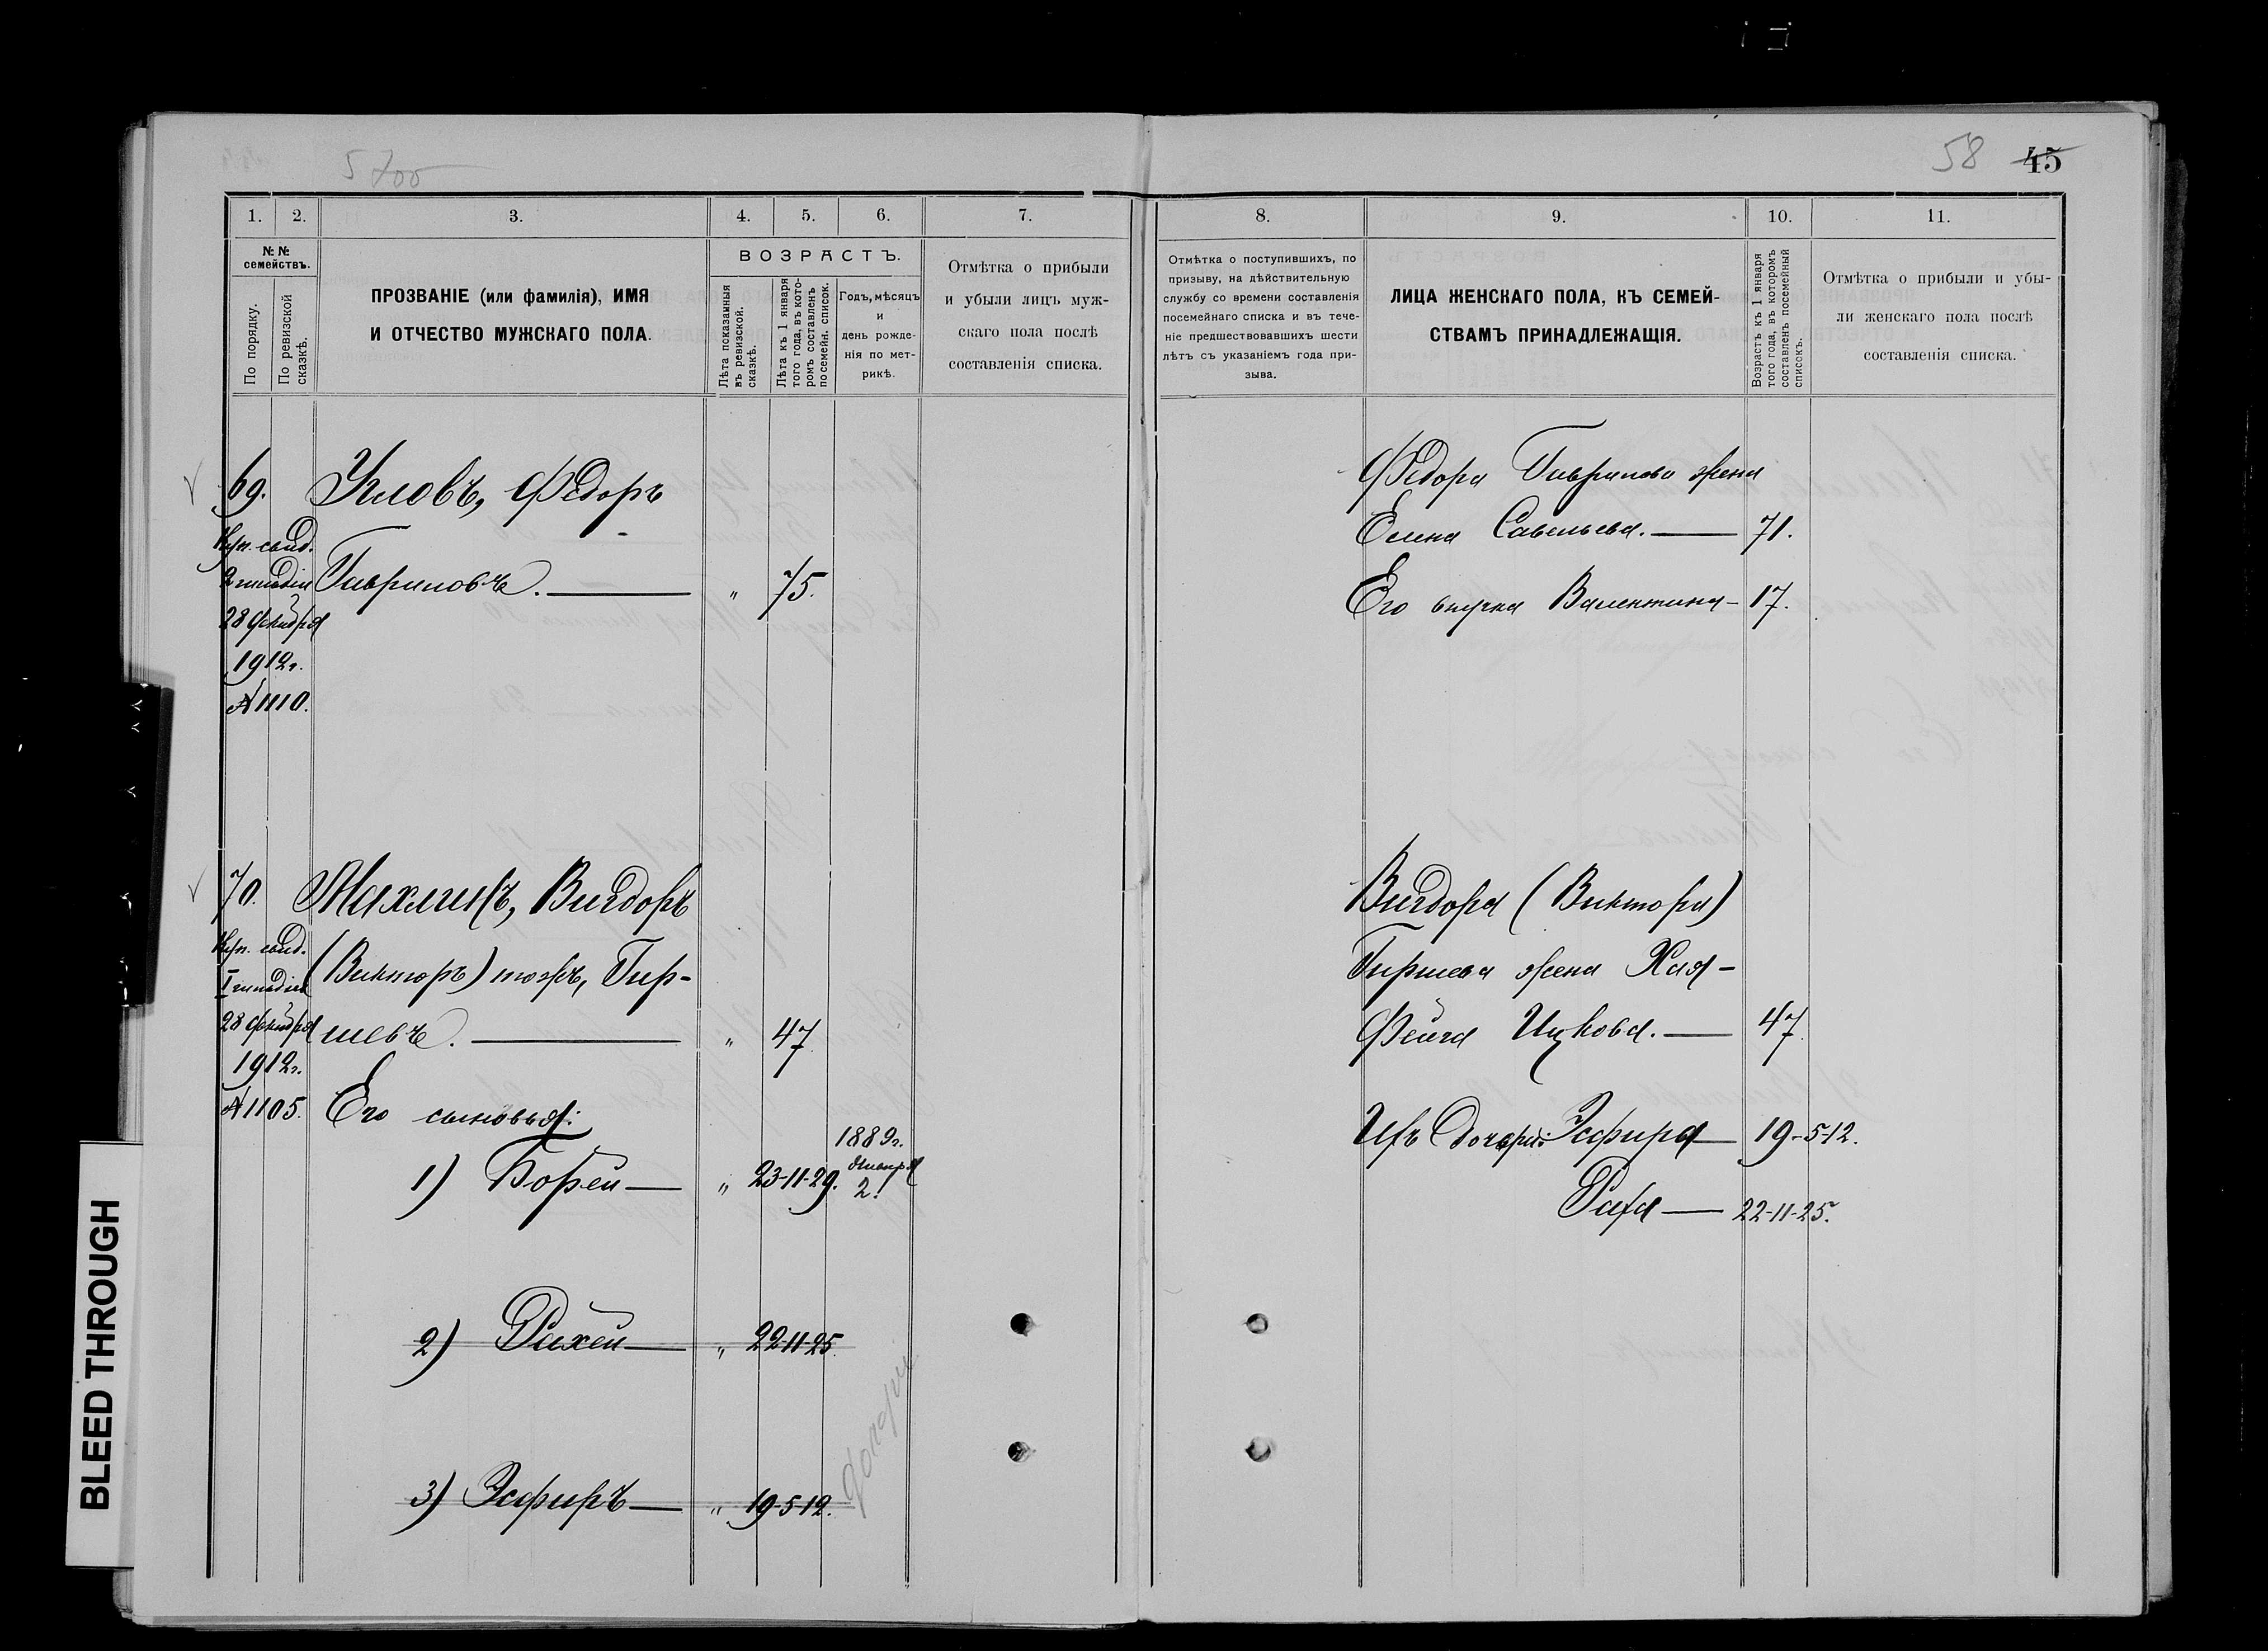 5700
58 45
1. 2. 3. 4. 5. 6. 7.
№№ семействъ.
По порядку.
По ревизской сказкѣ.
ПРОЗВАНІЕ (или фамилія), ИМЯ
И ОТЧЕСТВО МУЖСКАГО ПОЛА.
ВОЗРАСТЪ.
Лѣта показанныя въ ревизской сказкѣ.
Лѣта къ 1 января того года, въ которомъ составленъ посемейн. список.
Годъ, мѣсяцъ
и
день рожде-
нія по мет-
рикѣ.
Отмѣтка о прибыли
и убыли лицъ муж-
скаго пола послѣ
составленія списка.
69. Угловъ, Федоръ
Куп. свид.
2 гильдіи Гавриловъ. — " 75.
28 Декабря
1912г.
№1110.
70. Махлинъ, Вигдоръ
Куп. свид. (Викторъ) тожъ, Гир-
I гильдіи
28 Декабря шевъ. — " 47
1912г.
№1105. Его сыновья:
1889г.
1) Борей — " 23-11-29. января
2.
2) Рахей — " 22-11-25.
3) Эсфиръ — " 19-5-12.
дочери
8. 9. 10. 11.
Отмѣтка о поступившихъ, по
призыву, на дѣйствительную
службу со времени составленія
посемейнаго списка и въ тече-
ніе предшествовавшихъ шести
лѣтъ съ указаніемъ года при-
зыва.
ЛИЦА ЖЕНСКАГО ПОЛА, КЪ СЕМЕЙ-
СТВАМЪ ПРИНАДЛЕЖАЩІЯ.
Возрастъ къ 1 января того года, въ которомъ составленъ посемейный списокъ.
Отмѣтка о прибыли и убы-
ли женскаго пола послѣ
составленія списка.
Федора Гаврилова жена
Елена Савельева. — 71.
Его внучка Валентина — 17.
Вигдора (Виктора)
Гиршева жена Хая-
Фейга Ицкова. — 47.
Ихъ дочери: Эсфира — 19-5-12.
Раха — 22-11-25.
BLEED THROUGH